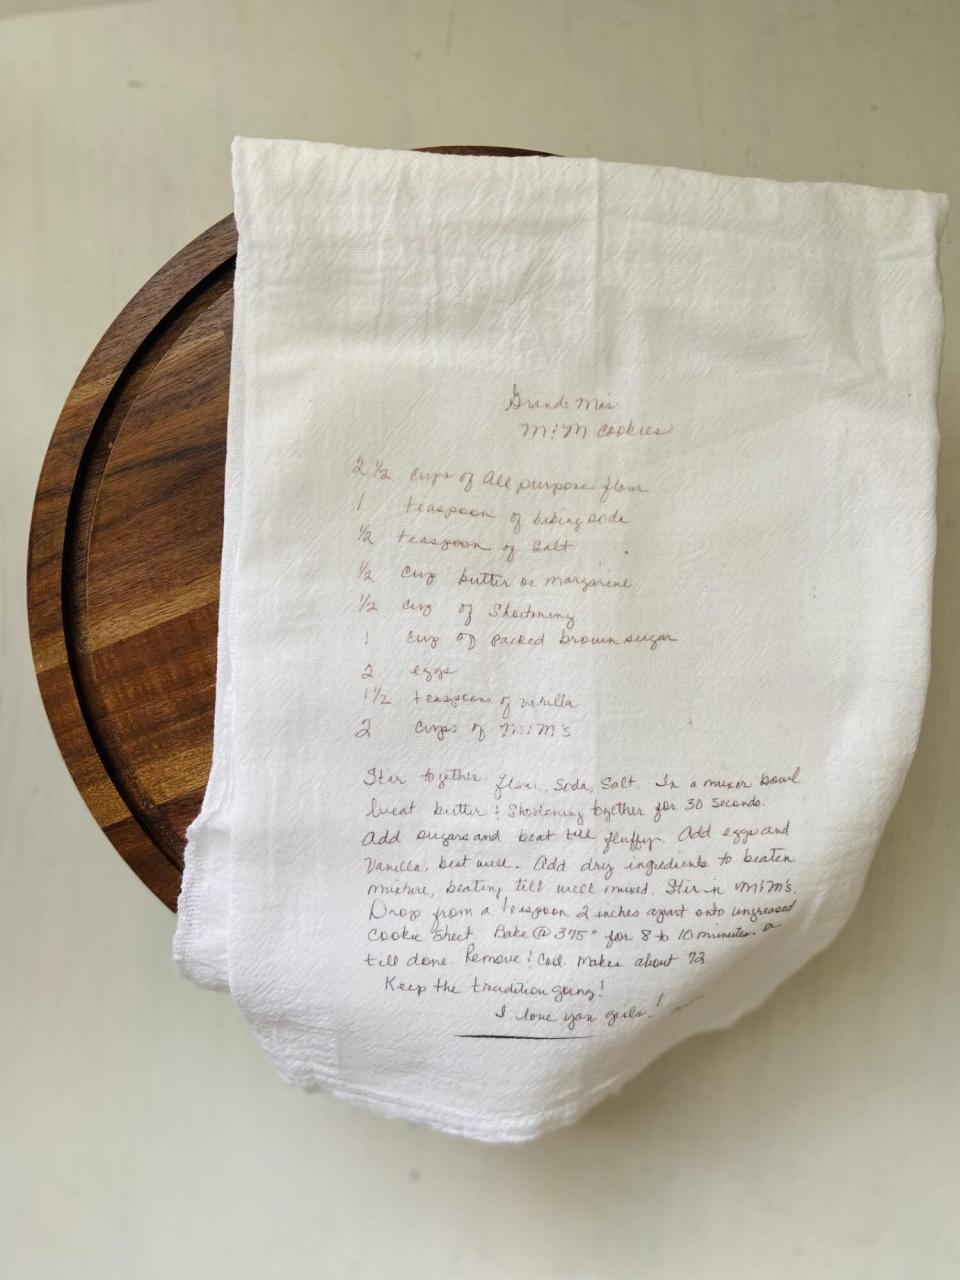 Grand Ma's
M&M Cookies
2 1/2 cups of All purpose flour
1 teaspoon of baking soda
1/2 teaspoon of Salt
1/2 cup butter or margarine
1/2 cup of Shortening
1 cup of packed brown sugar
2 eggs
1 1/2 teaspoons of vanilla
2 cups of M&M's
Stir together flour, Soda, Salt. In a mixer bowl
beat butter & Shortening together for 30 Seconds.
Add sugars and beat till fluffy. Add eggs and
Vanilla, beat well. Add dry ingredients to beaten
mixture, beating till well mixed. Stir in M&M's.
Drop from a teaspoon 2 inches apart onto ungreased
Cookie Sheet. Bake @ 375° for 8 to 10 minutes. or
till done. Remove & Cool. Makes about 72
Keep the tradition going!
I love you girls!